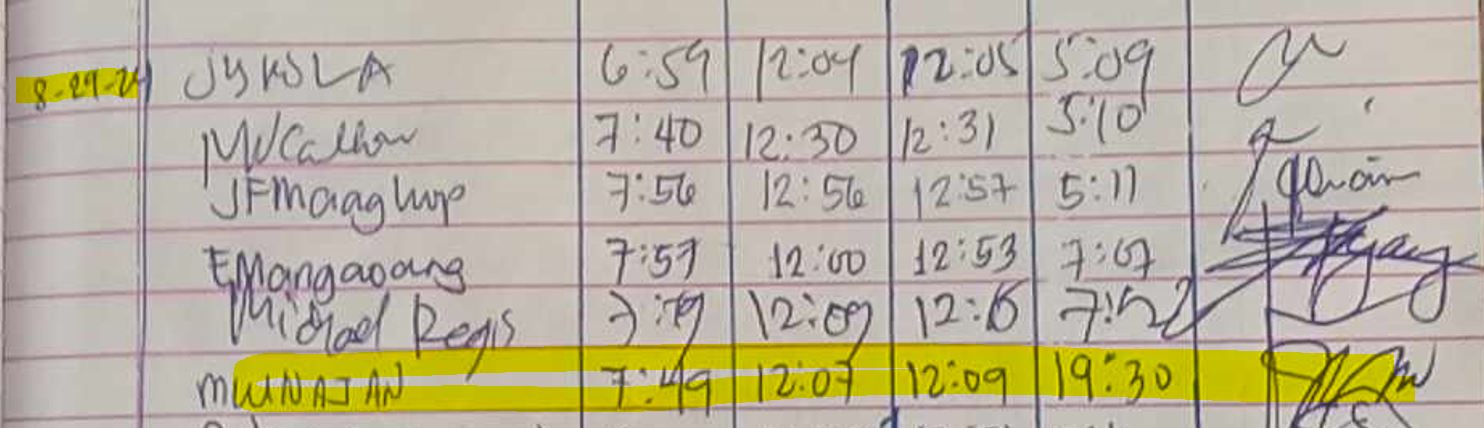 8-29-24 JYKOLA 6:59 12:04 12:05 5:09
7:40 12:30 12:31 5:10
JFMaaghup 7:56 12:56 12:57 5:11
EMangaoang 7:57 12:00 12:53 7:07
Michael Regis 12:09 12:15
MWNAJAN 7:49 12:07 12:09 19:30